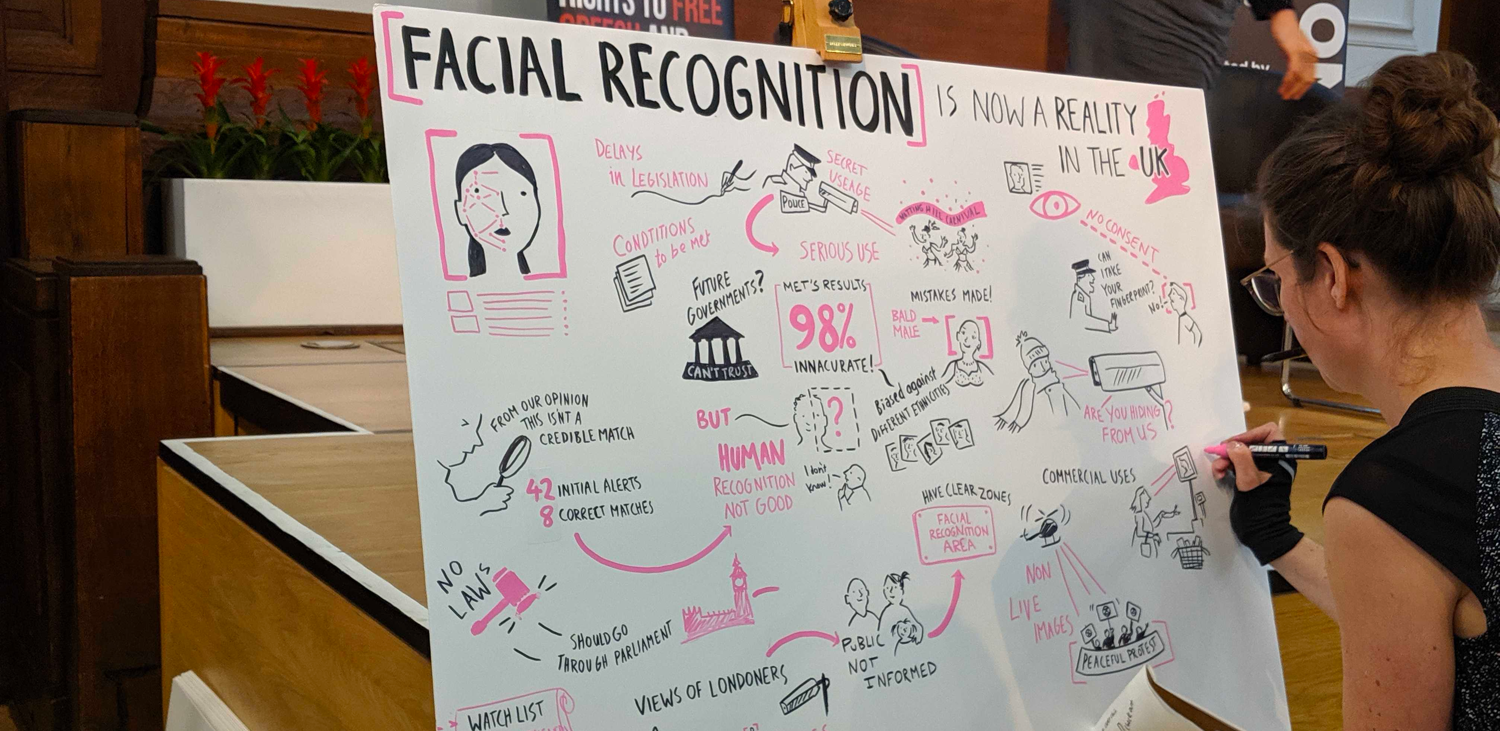 RIGHTS TO FREE
SPEECH AND
[FACIAL RECOGNITION] IS NOW A REALITY
IN THE UK
DELAYS
in LEGISLATION
POLICE
SECRET
USEAGE
NOTTING HILL CARNIVAL
NO CONSENT
CONDITIONS
to be met
SERIOUS USE
CAN
I TAKE
YOUR
FINGERPRINT?
No!
FUTURE
GOVERNMENTS?
CAN'T TRUST
MET'S RESULTS
98%
INNACURATE!
MISTAKES MADE!
BALD
MALE
Biased against
DIFFERENT ETHNICITIES
ARE YOU HIDING
FROM US?
FROM OUR OPINION
THIS ISN'T A
CREDIBLE MATCH
42 INITIAL ALERTS
8 CORRECT MATCHES
BUT
?
HUMAN
RECOGNITION
NOT GOOD
I don't
know!
HAVE CLEAR ZONES
FACIAL
RECOGNITION
AREA
COMMERCIAL USES
NON
LIVE
IMAGES
PEACEFUL PROTEST
NO
LAW'S
SHOULD GO
THROUGH PARLIAMENT
PUBLIC
NOT
INFORMED
VIEWS OF LONDONERS
WATCH LIST